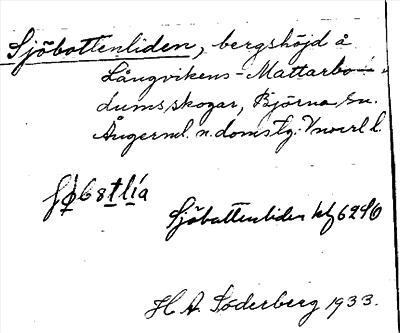 Sjöbottenliden, bergshöjd å
Långvikens-Mattarbo-
dums skogar, Björna sn.
Ångerml. n. domstg. Vnorrl l.
Sjöbottenliden kf 6240
H. A. Söderberg 1933.